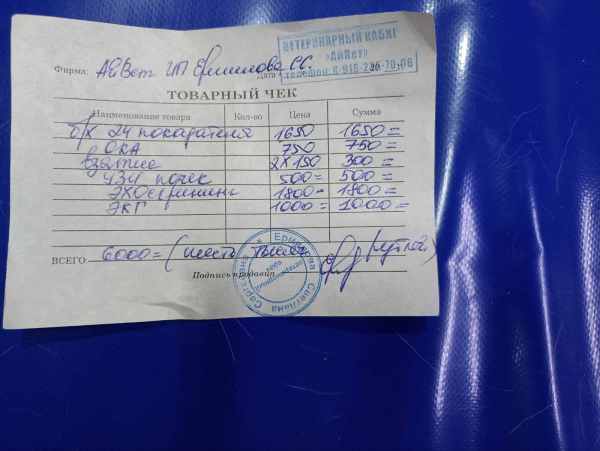 ВЕТЕРИНАРНЫЙ КАБИНЕТ
«АйВет»
Фирма: АйВет ИП Ермилова С.С. Дата
телефон: 8-916-
ТОВАРНЫЙ ЧЕК
Наименование товара Кол-во Цена Сумма
б/х 24 показателя 1650 1650=
ОКА 750 750=
взятие 2х150 300=
УЗИ почек 500= 500=
ЭХОскрининг 1800= 1800=
ЭКГ 1000= 1000=
ВСЕГО 6000= (шесть тысяч рублей)
Подпись продавца
Светлана Сергеевна